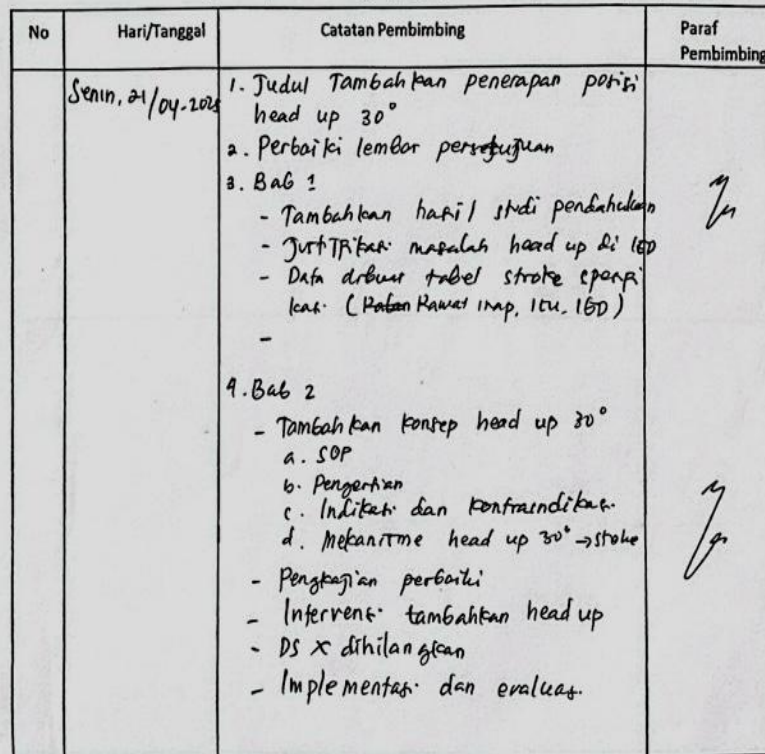 No
Hari/Tanggal
Catatan Pembimbing
Paraf
Pembimbing
Senin, 21/04-2025
1. Judul Tambahkan penerapan posisi
head up 30°
2. Perbaiki lembar persetujuan
3. Bab 1
- Tambahkan hasil studi pendahuluan
- Justifikasi masalah head up di IGD
- Data dibuat tabel stroke
(Rawat inap, ICU, IGD)
-
4. Bab 2
- Tambahkan konsep head up 30°
a. SOP
b. Pengertian
c. Indikasi dan kontraindikasi
d. Mekanisme head up 30° → stroke
- Pengkajian perbaiki
- Intervensi tambahkan head up
- DS X dihilangkan
- Implementasi dan evaluasi